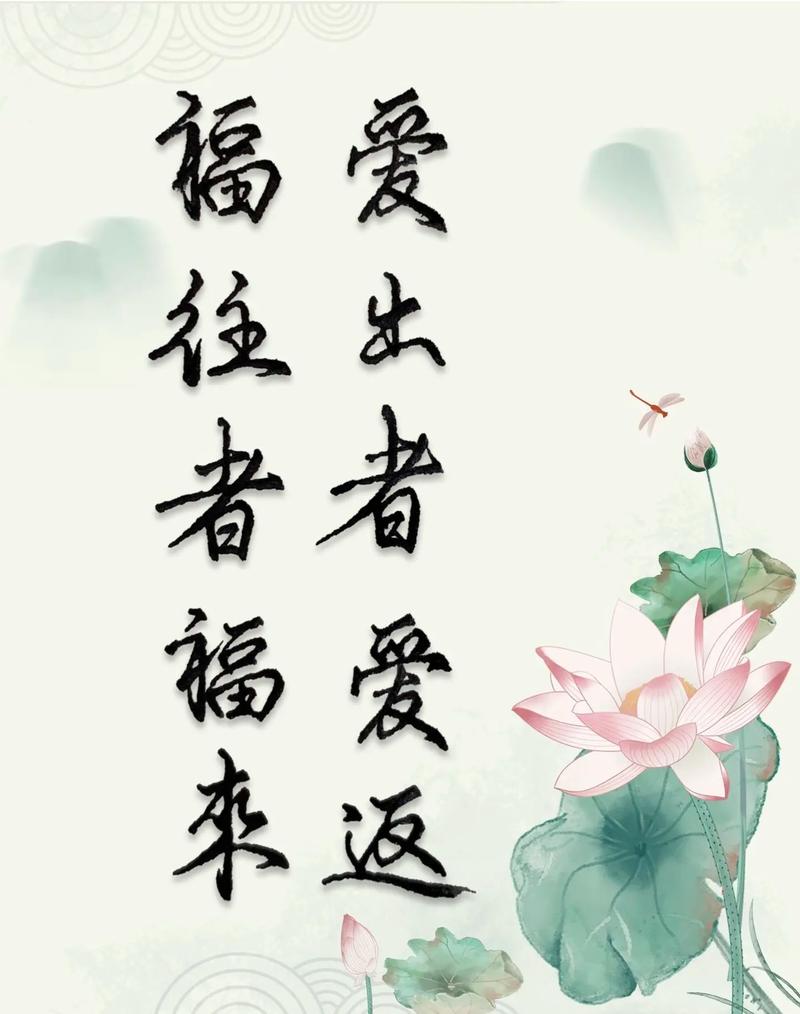 爱出者爱返
福往者福來